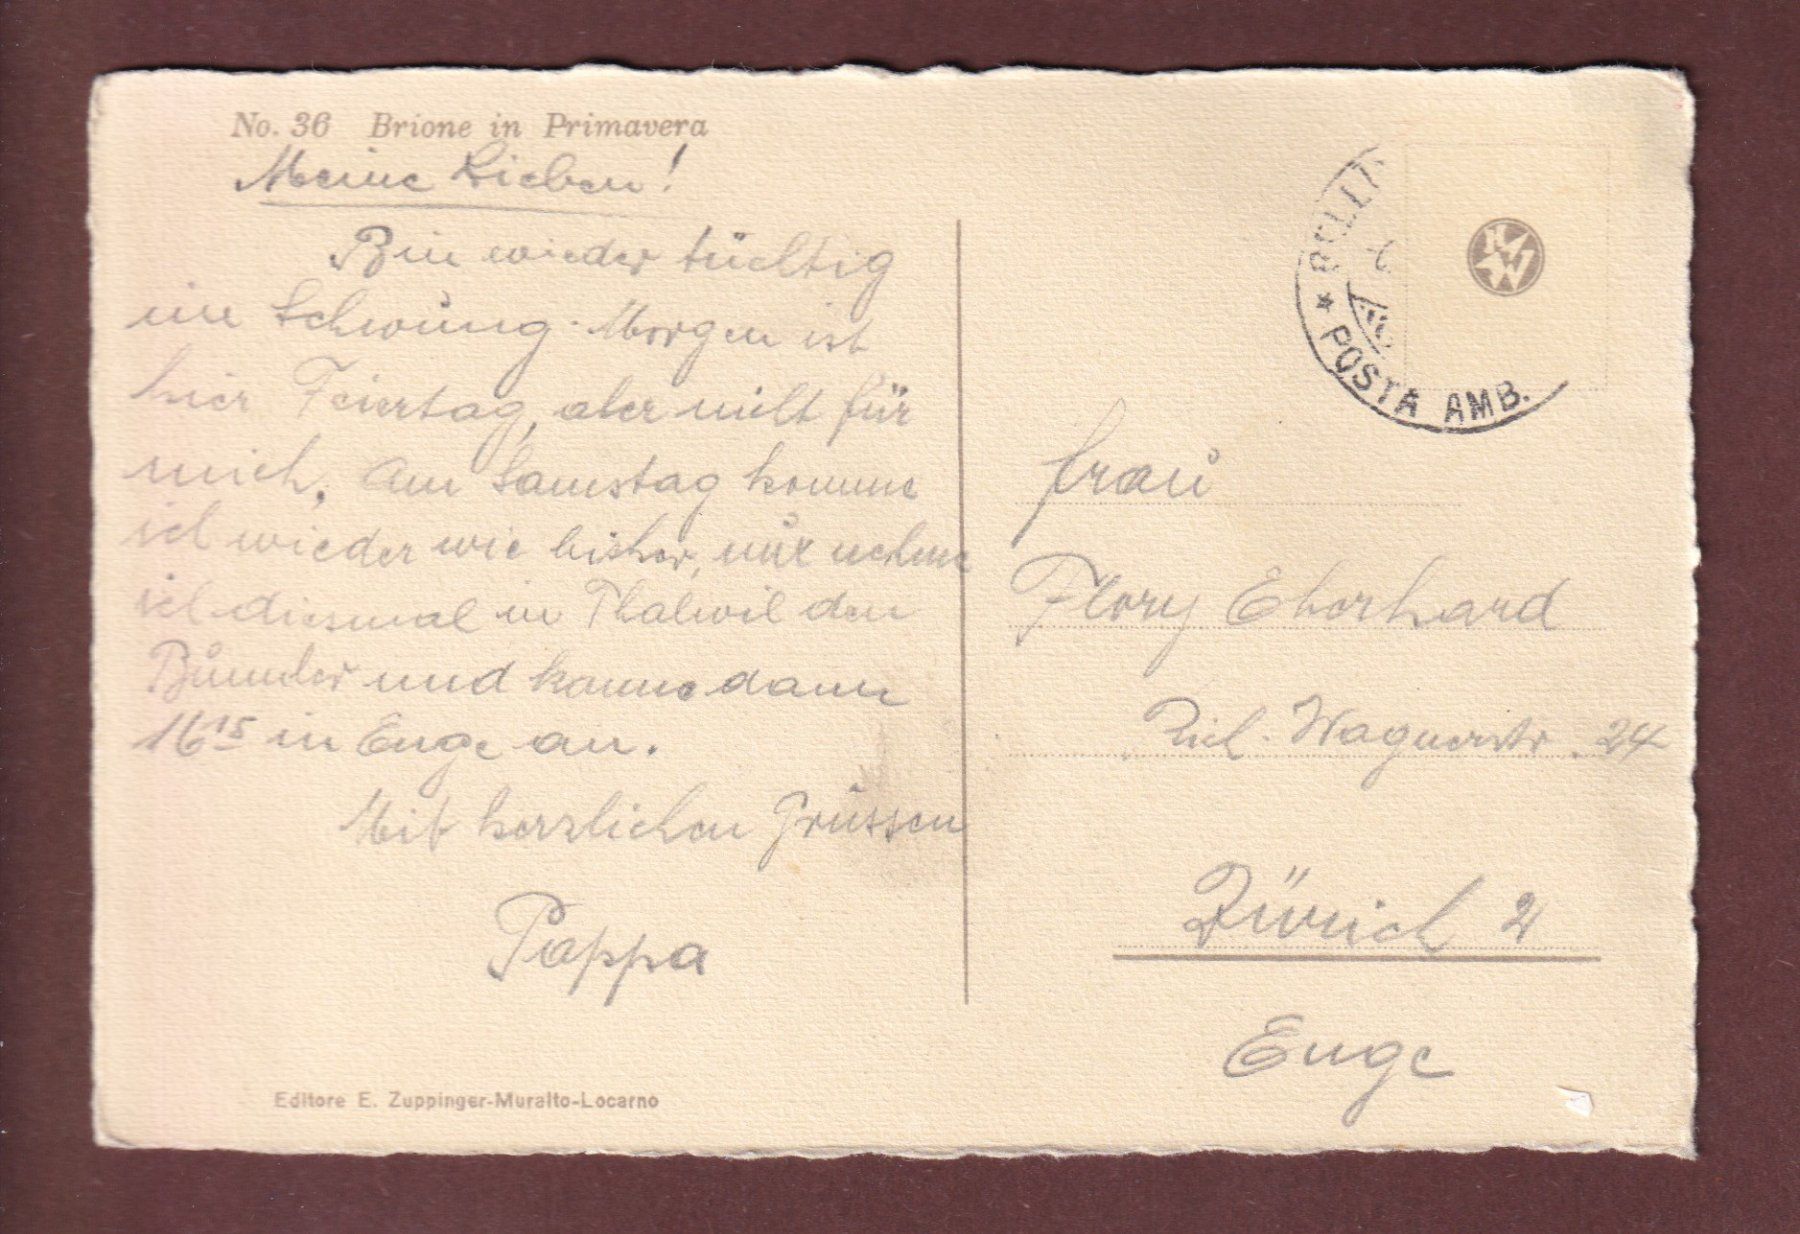 No. 36 Brione in Primavera
Meine Lieben!
Bin wieder tüchtig
im Schwung. Morgen ist
hier Feiertag, aber nicht für
mich. Am Samstag komme
ich wieder wie bisher, nur nehme
ich diesmal in Thalwil den
Bummler und komme dann
16¹⁵ in Enge an.
Mit herzlichen Grüssen
Pappa
Editore E. Zuppinger-Muralto-Locarno
POSTA AMB.
Frau
Flory Eberhard
Rich. Wagnerstr. 24
Zürich 2
Enge